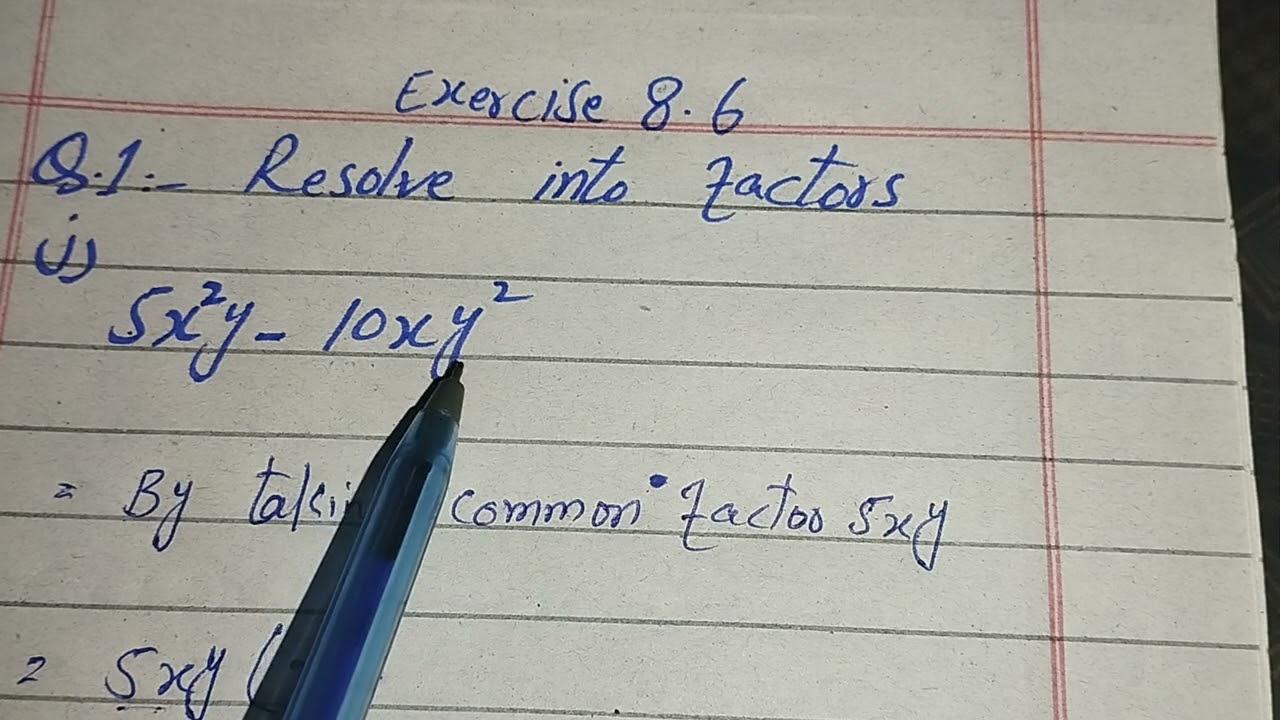 Exercise 8.6
Q.1:- Resolve into factors
(i)
5x²y - 10xy²
= By common factor 5xy
= 5xy (